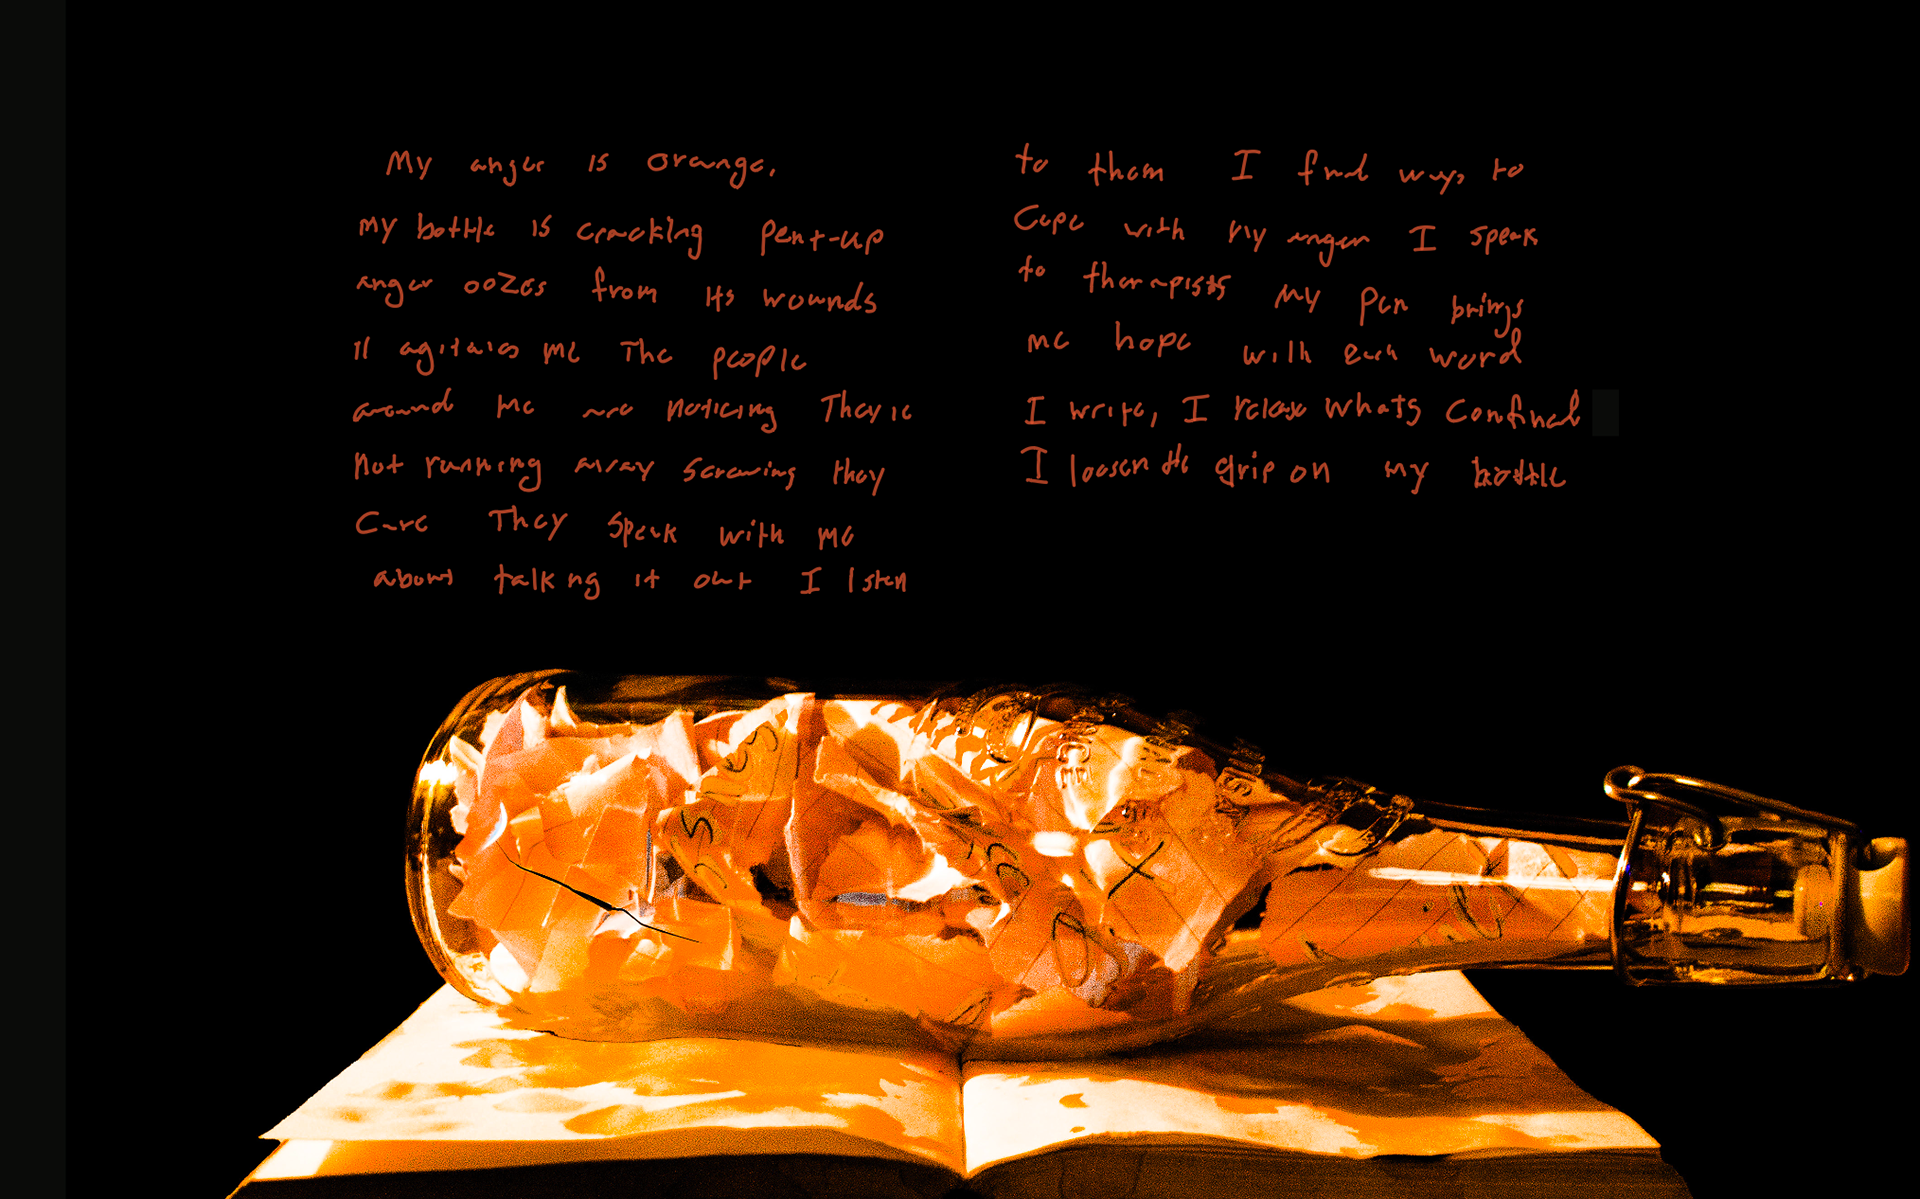 My anger is orange.
my bottle is cracking pent-up
anger oozes from its wounds
it agitates me The people
around me are noticing They're
not running away screaming they
care They speak with me
about talking it out I listen
to them I find ways to
cope with my anger I speak
to therapists my pen brings
me hope with each word
I write, I release whats confined
I loosen the grip on my bottle